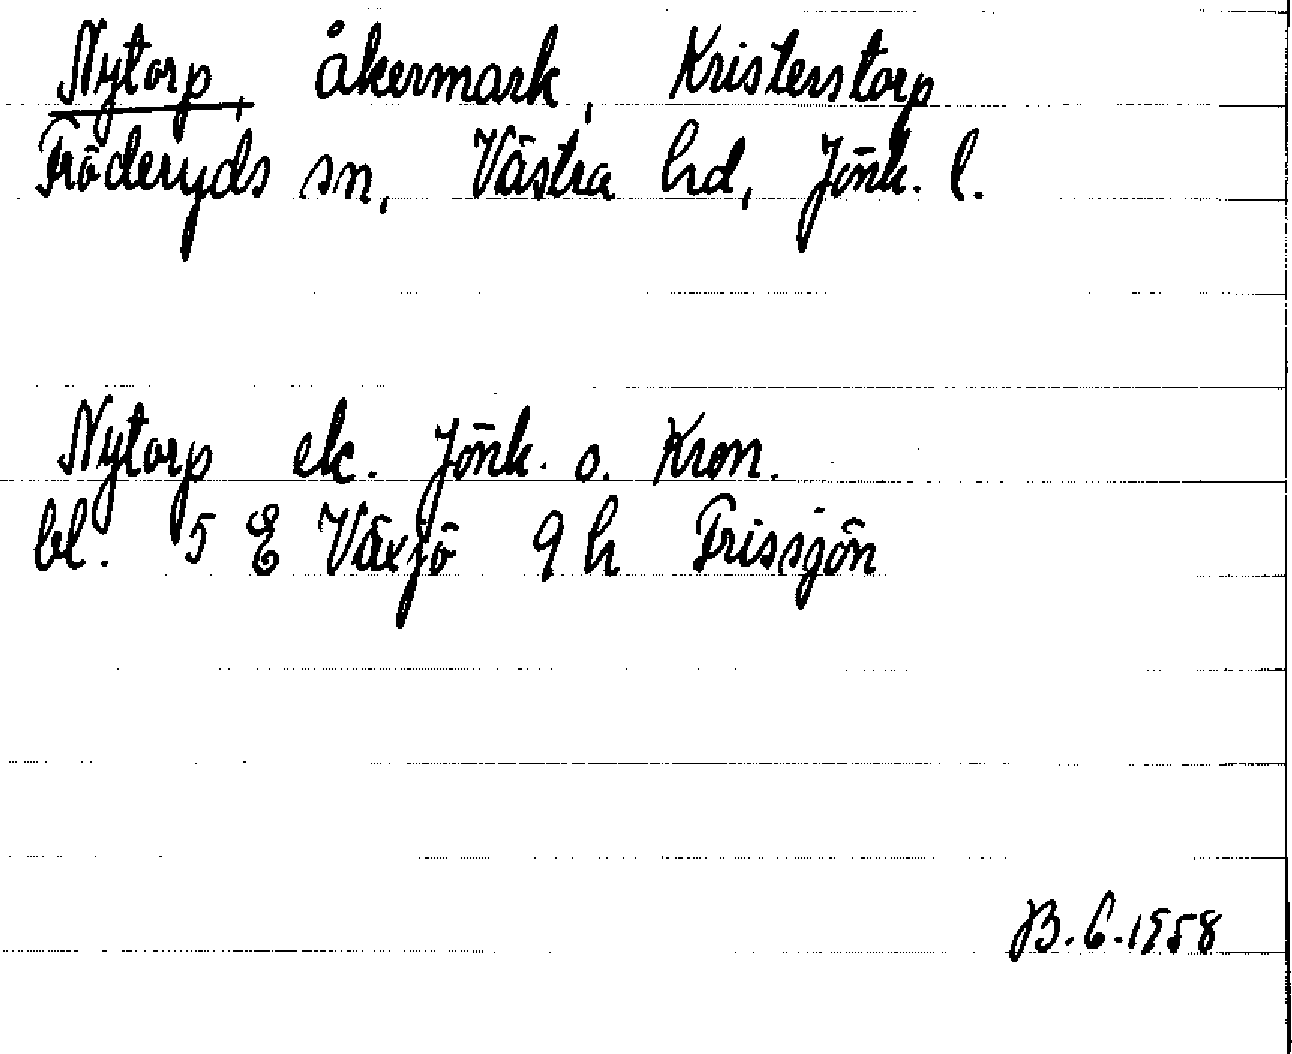 Nytorp, åkermark, Kristerstorp
Fröderyds sn, Västra hd, Jönk. l.
Nytorp ek. Jönk. o. Kron.
bl. 5 E Växjö 9 h Frissjön
JB. 6. 1958